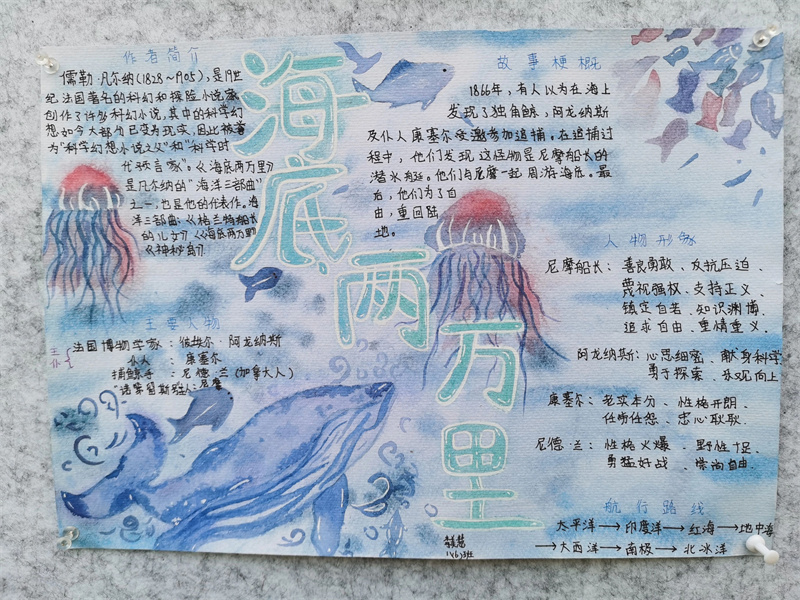 作者简介
儒勒·凡尔纳(1828～1905),是19世
纪法国著名的科幻和探险小说家
创作了许多科幻小说,其中的科学幻
想如今大部份已变为现实,因此被誉
为“科学幻想小说之父”和“科学时
代预言家”。《海底两万里》
是凡尔纳的“海洋三部曲”
之一,也是他的代表作。海
洋三部曲:《格兰特船长
的儿女》《海底两万里》
《神秘岛》
海底两万里
故事梗概
1866年,有人以为在海上
发现了独角鲸,阿龙纳斯
及仆人康塞尔受邀参加追捕。在追捕过
程中,他们发现这怪物是尼摩船长的
潜水艇。他们与尼摩一起周游海底。最
后,他们为了自
由,重回陆
地。
主要人物
主仆
法国博物学家:彼埃尔·阿龙纳斯
仆人:康塞尔
捕鲸手:尼德·兰(加拿大人)
尼摩
人物形象
尼摩船长:善良勇敢、反抗压迫、
蔑视强权、支持正义、
镇定自若、知识渊博、
追求自由、重情重义、
阿龙纳斯:心思细密、献身科学
勇于探索、乐观向上
康塞尔:老实本分、性格开朗、
任劳任怨、忠心耿耿.
尼德·兰:性格火爆、野性十足、
勇猛好战、崇尚自由.
航行路线
太平洋→印度洋→红海→地中海
→大西洋→南极→北冰洋